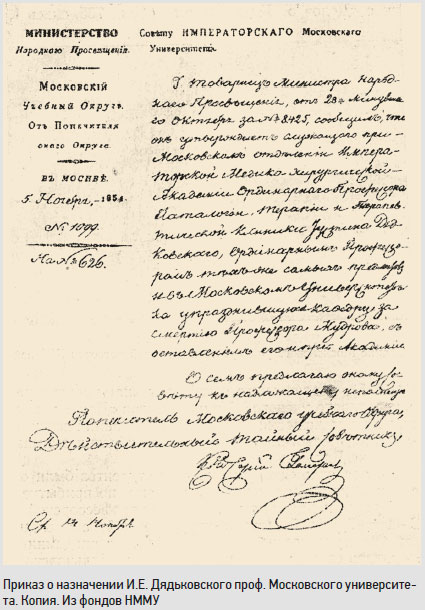 МИНИСТЕРСТВО
Народнаго Просвѣщенія.
Московскій
Учебный Округъ.
Отъ Попечителя
онаго Округа.
ВЪ МОСКВѢ.
5 Ноября, 1831.
№ 1099
На № 626.
Совѣту ИМПЕРАТОРСКАГО Московскаго
Университета.
Г. Товарищъ Министра Народ-
наго Просвѣщенія, отъ 28го минувша
го Октября за № 8425, сообщилъ, что
онъ утверждаетъ служащаго при
Московскомъ отдѣленіи Импера-
торской Медико-хирургической
Академіи Ординарнаго Профессора
Патологіи, Терапіи и Терапев-
тической клиники Іустина Дядь-
ковскаго, Ординарнымъ Профессо-
ромъ такъ же самыхъ предметовъ
и въ Московскомъ Универ
на упразднившуюся кафедру за
смертію Профессора Мудрова, съ
оставленіемъ его при Академіи
О семъ предлагаю оному Со-
вѣту къ надлежащему исполненію
Попечитель Московскаго Учебнаго Округа,
Дѣйствительный Тайный Совѣтникъ
Ср. 14 Ноября
Приказ о назначении И.Е. Дядьковского проф. Московского университе-
та. Копия. Из фондов НММУ